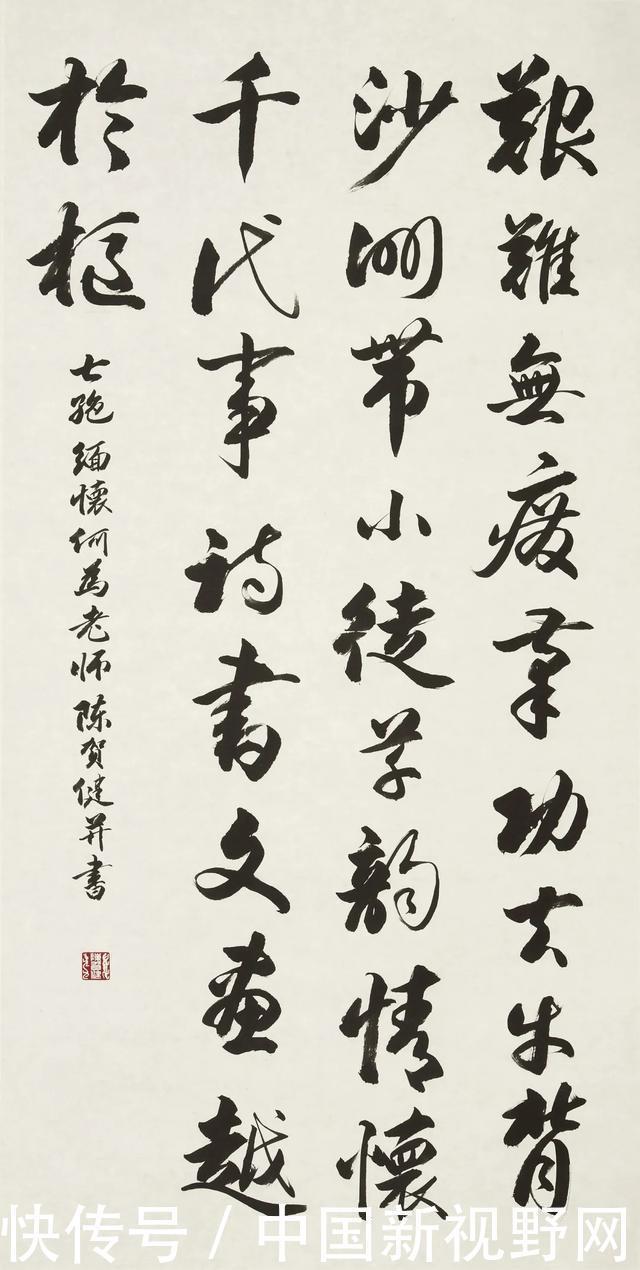 艱難無廢業功夫牛背
沙洲带小徒学韵情懷
千代事诗書文画越
於
七绝缅懷何為老师陈贺健并書
快传号 / 中国新视野网